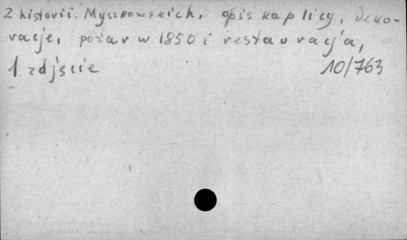 Z historii. Myszkowskich, opis kaplicy, deko-
racje, pożar w 1850 i restauracja,
1 zdjęcie 10/763